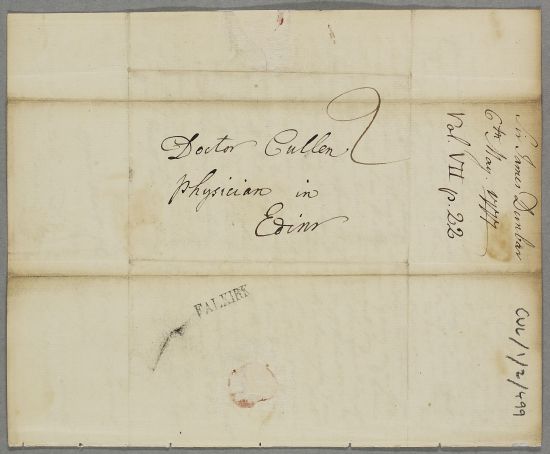 Doctor Cullen
Physician in
Edinr
2
Sr James Dunbar
6th May 1777
Vol. VII p. 22
FALKIRK
CUL/1/2/499